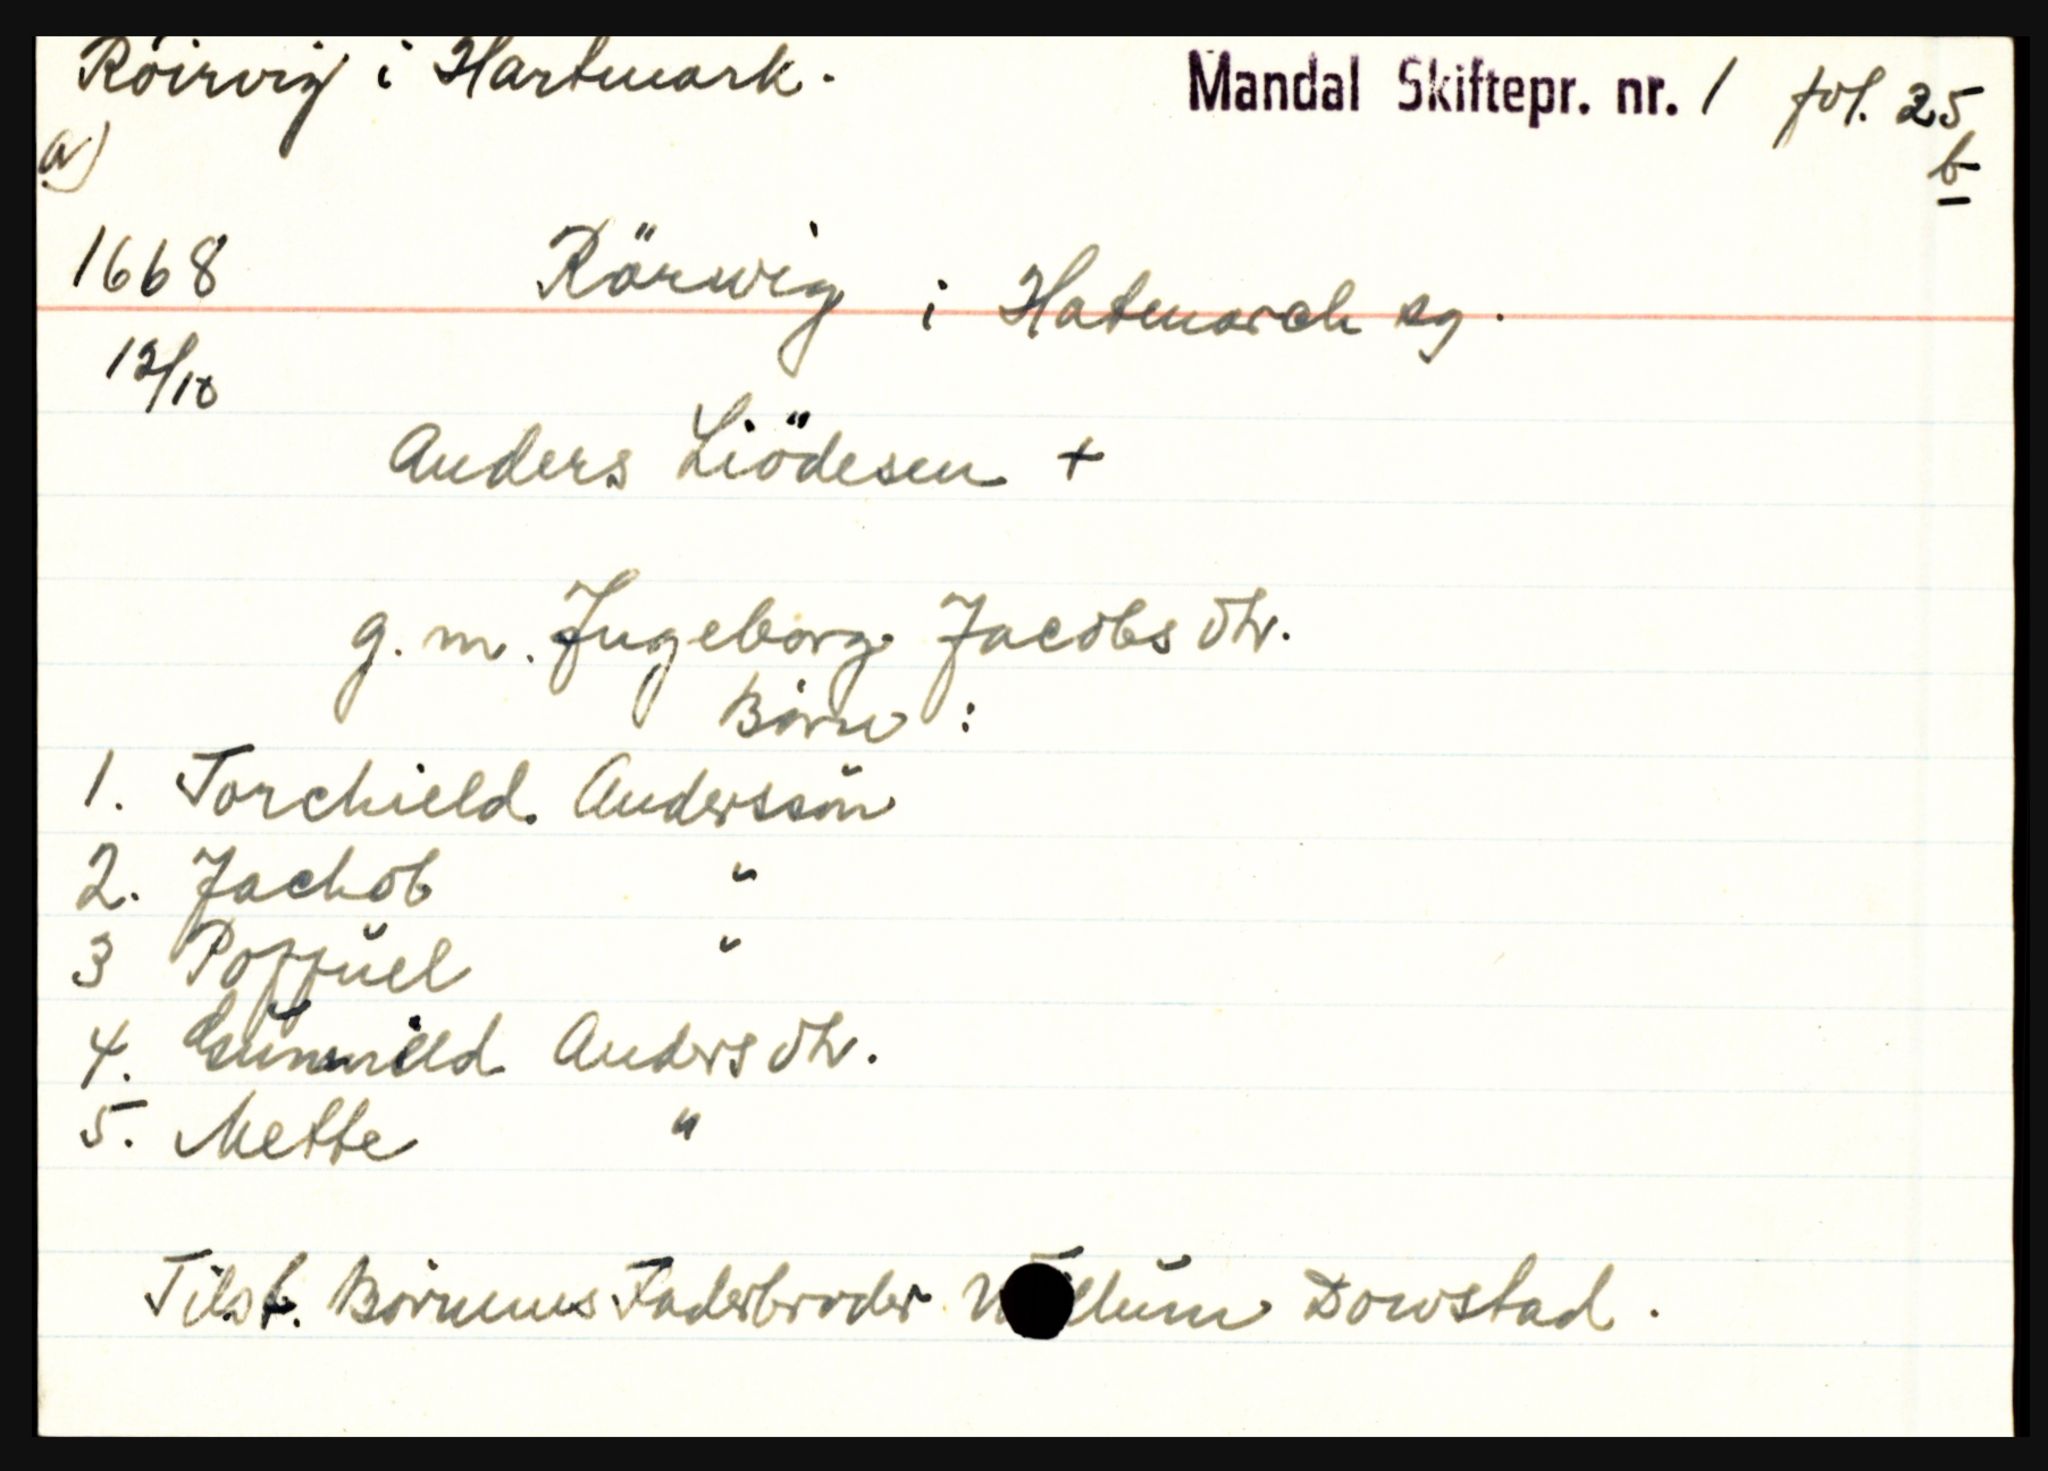 Röirvig i Hartmark.
Mandal Skiftepr. nr. 1 fol. 25
b
a)
1668
Rörwig i Hatmarch sg.
12/10
Anders Liödesen +
g. m. Ingeborg Jacobs dtr.
Börn :
1. Torchield Anderssön
2. Jachob "
3 Poffuel "
4. Gunnild Anders dtr.
5. Mette "
Tilst. Börnenes Faderbroder Willum Dowstad.